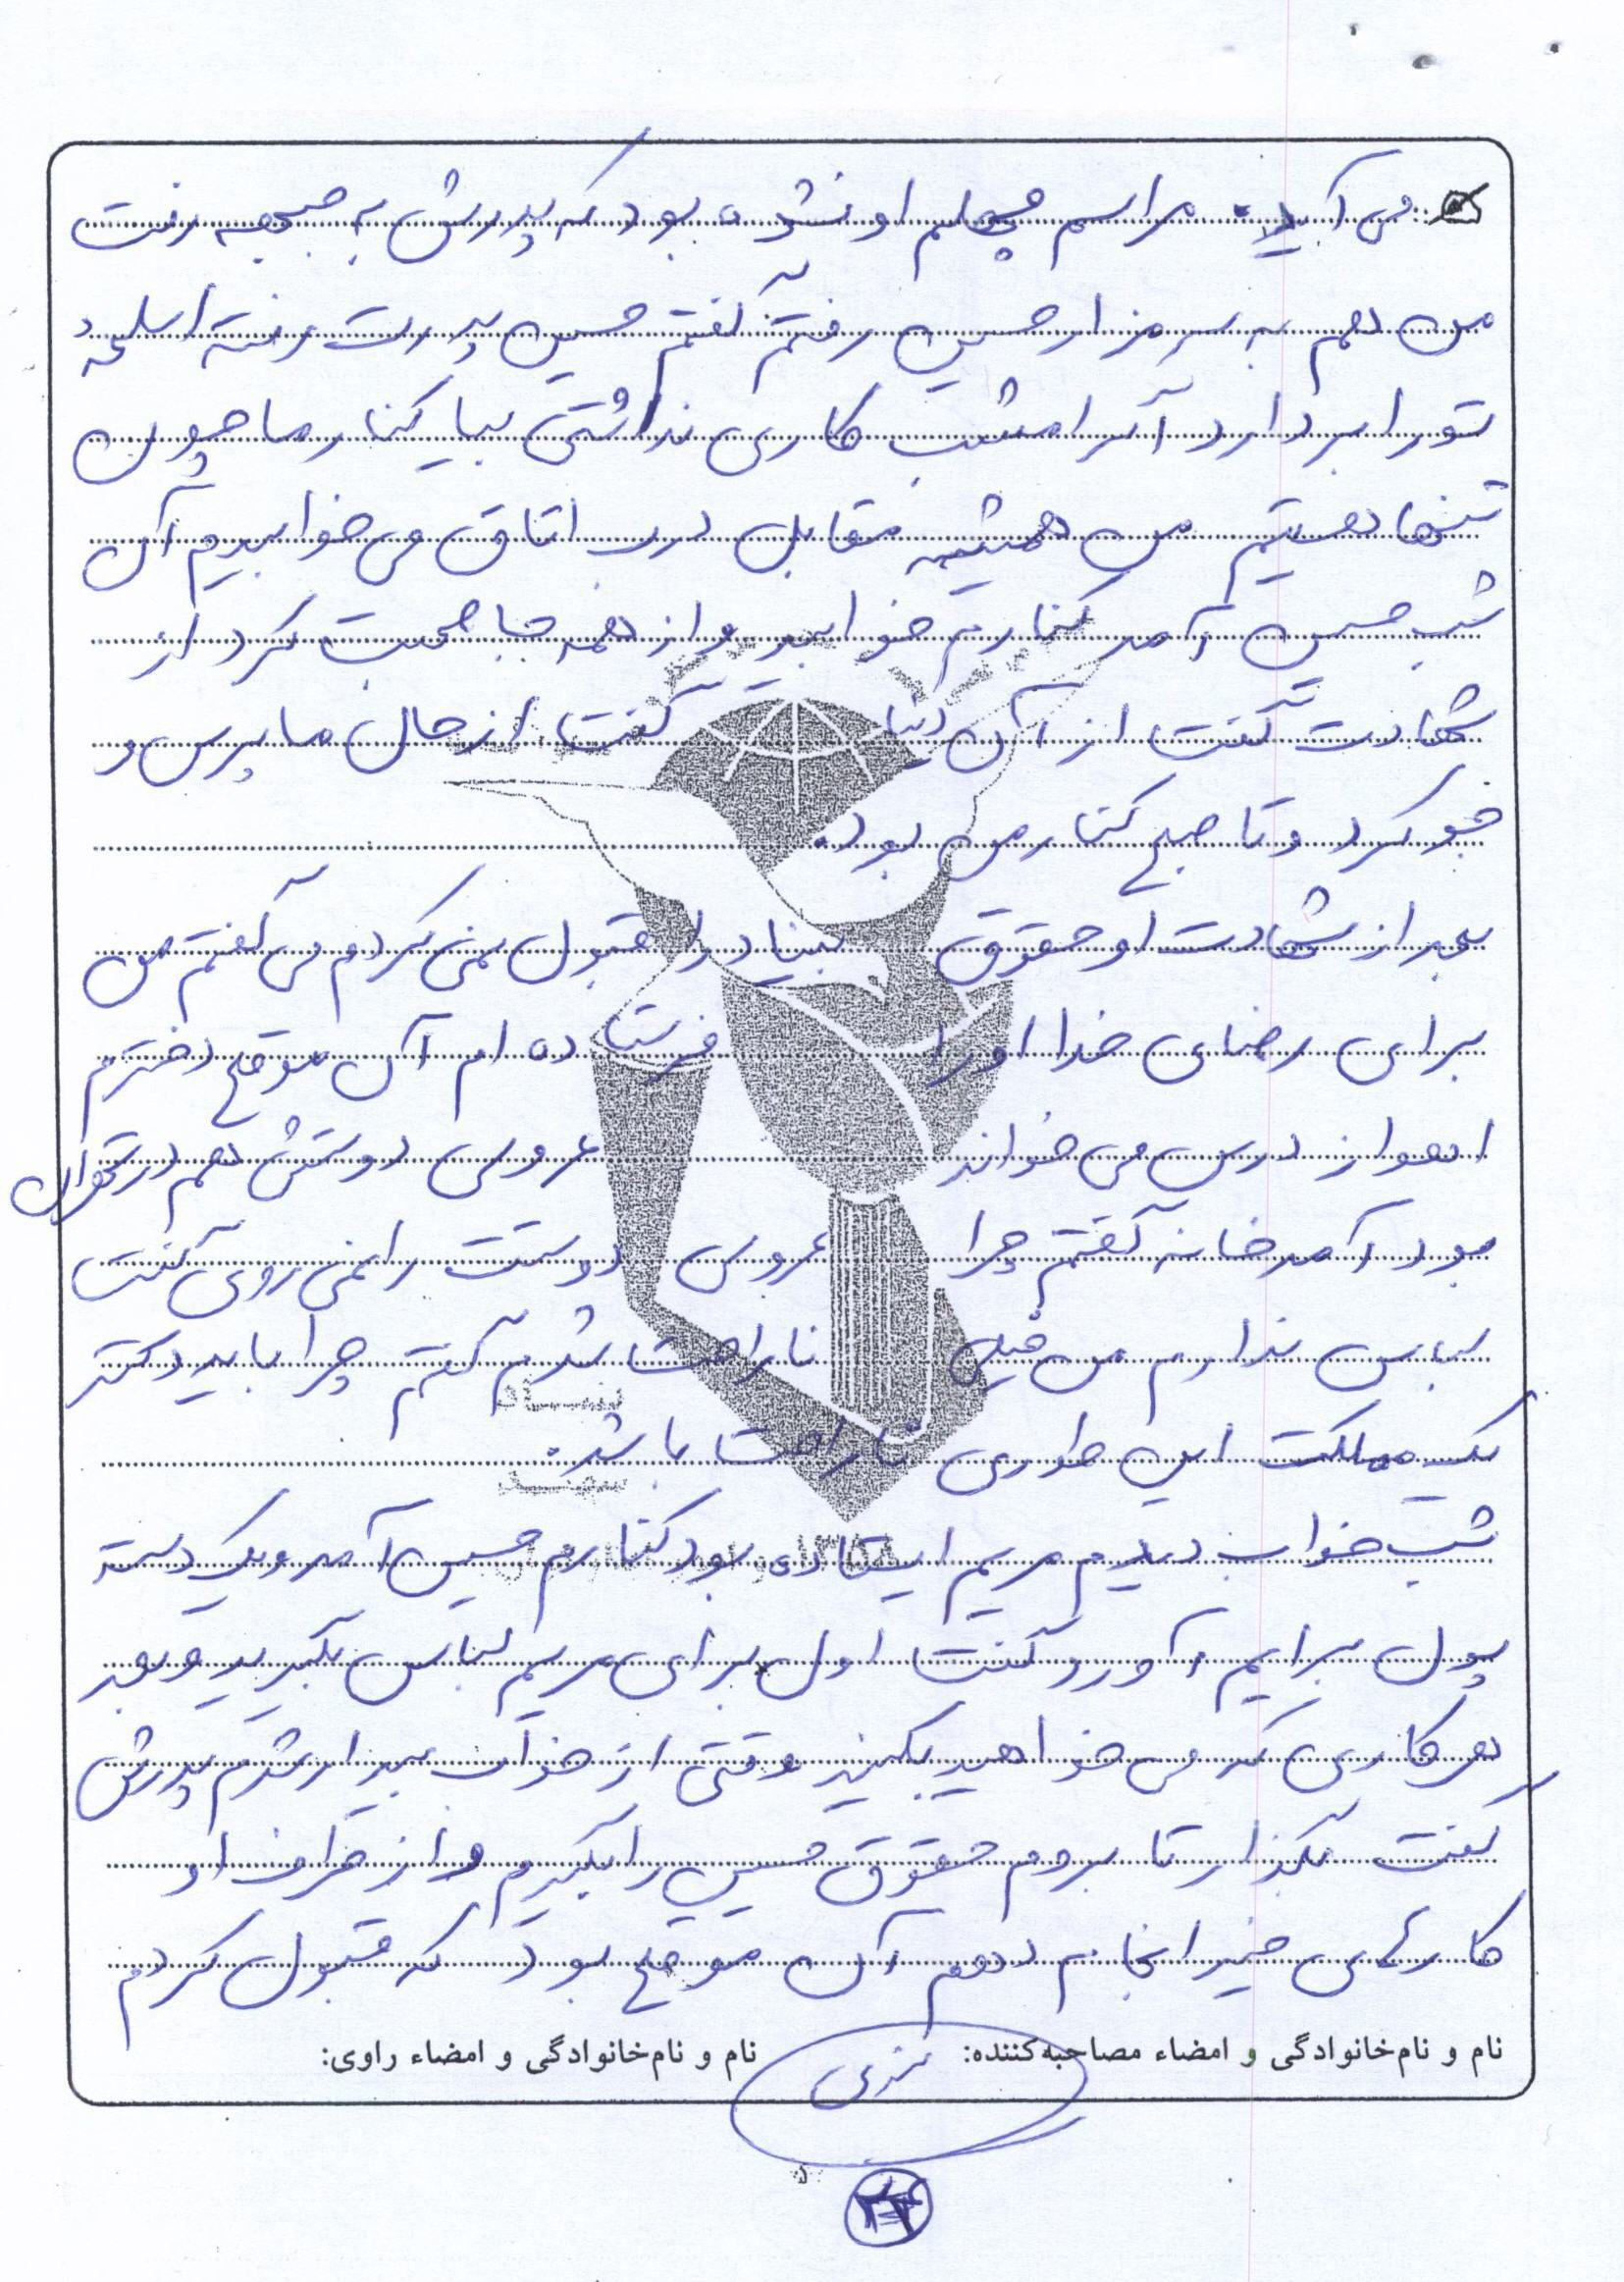 می آید. مراسم چهلم او نشده بود که پدرش به جبهه رفت
من هم به سر مزار حسین رفتم گفتم حسین پدرت رفته اسلحه
تو را بردارد اگر امشب کاری نداشتی بیا کنار ما چون
تنها هستیم من همیشه مقابل درب اتاق می خوابیدم آن
شب حسین آمد کنارم خوابید و از همه جا صحبت کرد از
شهادت گفت از آن دنیا گفت از حال ما پرس و
جو کرد و تا صبح کنار من بود.
بعد از شهادت او حقوق بنیاد را قبول نمی کردم می گفتم من
برای رضای خدا او را فرستاده ام آن موقع دخترم
اهواز درس می خواند عروسی دوستش هم در تهران
بود آمد خانه گفتم چرا عروسی دوستت را نمی روی گفت
لباس ندارم من خیلی ناراحت شدم گفتم چرا باید دکتر
یک مملکت این طوری ناراحت باشد.
شب خواب دیدم مریم ایستاده بود کنارم حسین آمد و یک دسته
پول برایم آورد گفت اول برای مریم لباس بگیرید و بعد
هر کاری که می خواهید بکنید وقتی از خواب بیدار شدم پدرش
گفت بگذار تا بروم حقوق حسین را بگیرم و از طرف او
کارهای خیر انجام دهم آن موقع بود که قبول کردم
نام و نام‌خانوادگی و امضاء مصاحبه‌کننده: نام و نام‌خانوادگی و امضاء راوی: